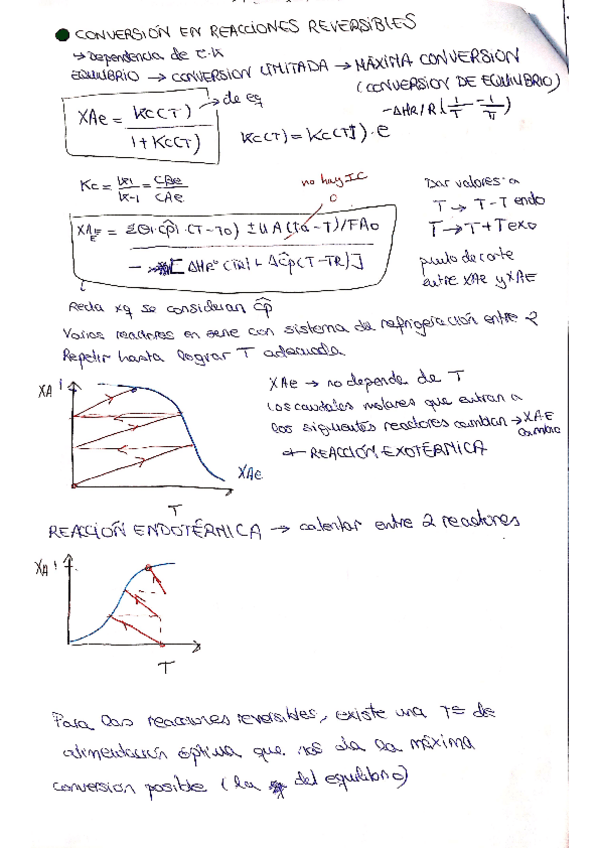 ● CONVERSIÓN EN REACCIONES REVERSIBLES
→ Dependencia de
EQUILIBRIO → CONVERSION LIMITADA → MÁXIMA CONVERSION
(CONVERSION DE EQUILIBRIO)
XAe = Kc(T) / 1 + Kc(T) → de eq
Kc(T) = Kc(T1) · e^(-ΔHR/R (1/T - 1/T1))
Kc = K1/K-1 = CBe/CAe
no hay IC
0
XAE = Σ(Θi·Cp̂i)·(T-T0) ± UA(Ta-T)/FA0 / -[ΔHR°(TR) + ΔCp̂(T-TR)]
Dar valores a
T → T - T endo
T → T + T exo
punto de corte
entre XAe y XAE
Recta xq se consideran Cp̂
Varios reactores en serie con sistema de refrigeración entre 2
Repetir hasta lograr T adecuada
XA 1
XAe
T
XAe → no depende de T
Los caudales molares que entran a
los siguientes reactores cambian → XAE
cambia
← REACCIÓN EXOTÉRMICA
REACCIÓN ENDOTÉRMICA → calentar entre 2 reactores
XA 1
T
Para las reacciones reversibles, existe una Tª de
alimentación óptima que nos da la máxima
conversion posible (la del equilibrio)